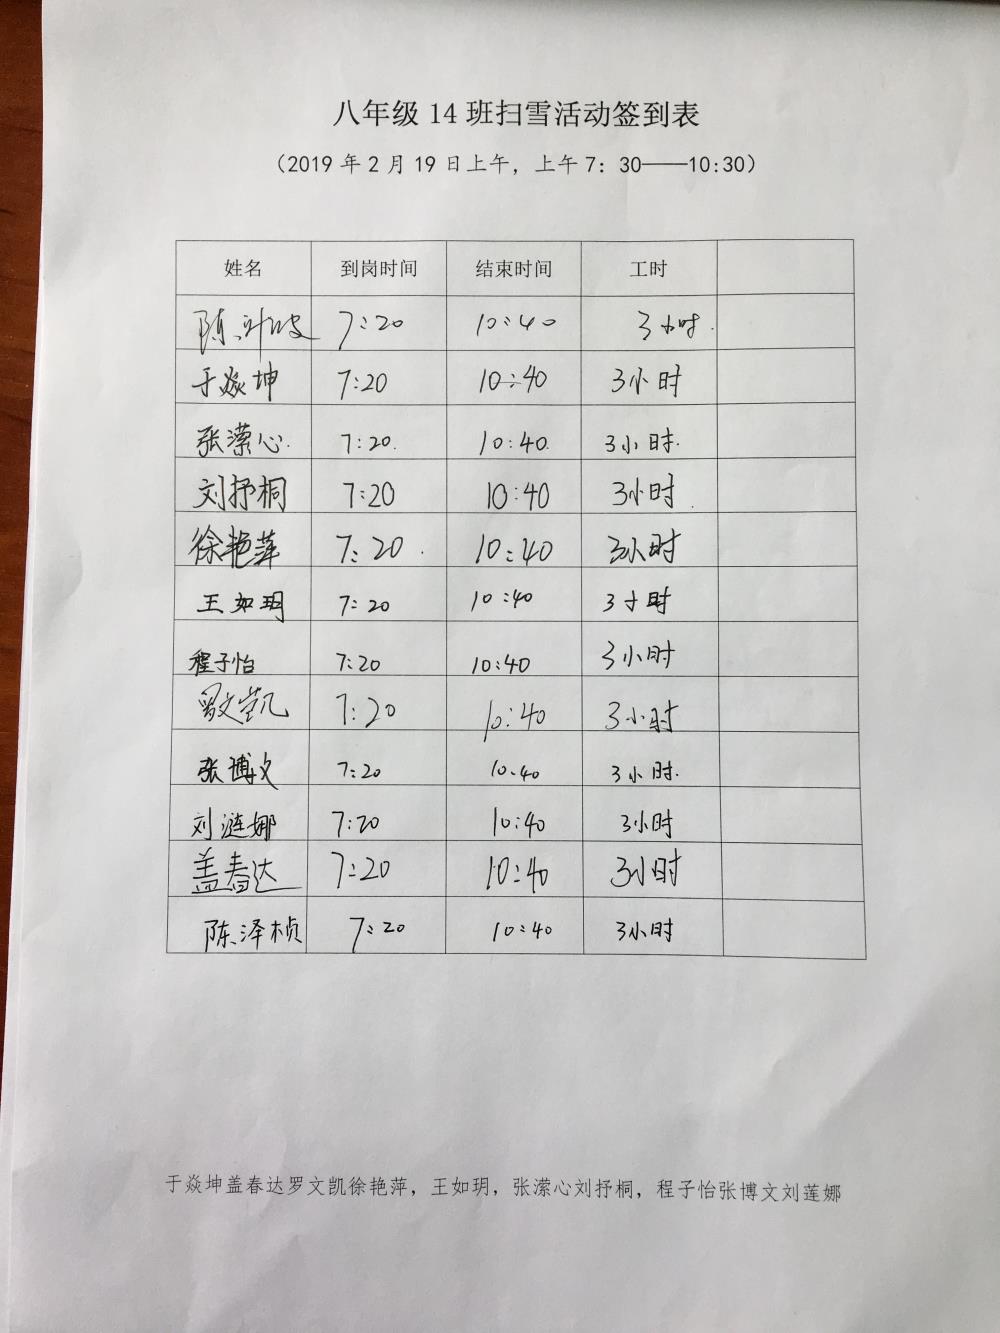 八年级 14 班扫雪活动签到表
（2019 年 2 月 19 日上午，上午 7：30——10:30）
姓名 到岗时间 结束时间 工时
陈 7:20 10:40 3小时.
于焱坤 7:20 10:40 3小时
张潆心. 7:20. 10:40. 3小时.
刘抒桐 7:20 10:40 3小时.
徐艳萍 7:20. 10:40 3小时
王如玥 7:20 10:40 3小时
程子怡 7:20 10:40 3小时
罗文凯 7:20 10:40 3小时
张博文 7:20 10.40 3小时.
刘涟娜 7:20 10:40 3小时
盖春达 7:20 10:40 3小时
陈泽桢 7:20 10:40 3小时
于焱坤盖春达罗文凯徐艳萍，王如玥，张潆心刘抒桐，程子怡张博文刘莲娜